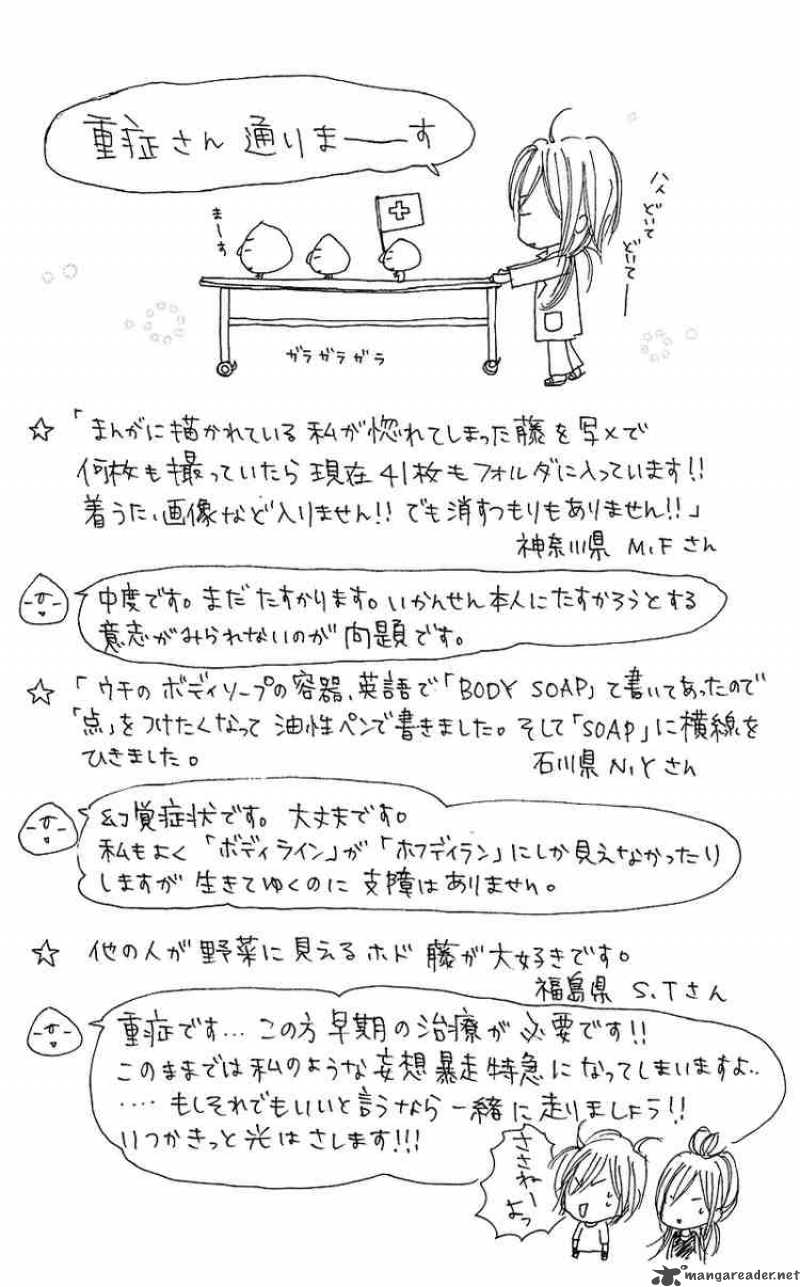 重症さん 通りまーーす
まーす
ハイ どいて どいてー
ガラガラガラ
☆「まんがに描かれている私が惚れてしまった藤を写メで
何枚も撮っていたら現在41枚もフォルダに入っています!!
着うた、画像など入りません!! でも消すつもりもありません!!」
神奈川県 M.Fさん
中度です。まだたすかります。いかんせん本人にたすかろうとする
意志がみられないのが問題です。
☆「ウチのボディソープの容器、英語で「BODY SOAP」て書いてあったので
「点」をつけたくなって油性ペンで書きました。そして「SOAP」に横線を
ひきました。
石川県 N.Yさん
幻覚症状です。大丈夫です。
私もよく「ボディライン」が「ホフディラン」にしか見えなかったり
しますが生きてゆくのに支障はありません。
☆ 他の人が野菜に見えるホド藤が大好きです。
福島県 S.Tさん
重症です… この方早期の治療が必要です!!
このままでは私のような妄想暴走特急になってしまいますよ..
‥‥もしそれでもいいと言うなら一緒に走りましょう!!
いつかきっと光はさします!!!
ささねー
よっ
mangareader.net